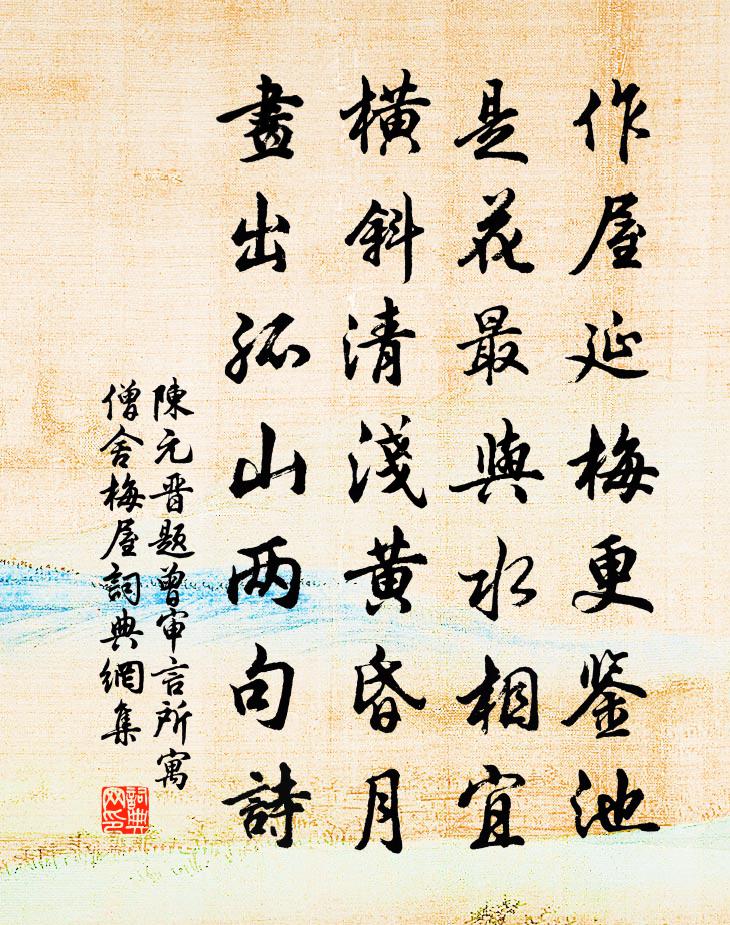 作屋延梅更鉴池
是花最與水相宜
橫斜清淺黃昏月
畫出孤山两句詩
陳元晋題曾审言所寓
僧舍梅屋詞典網集
詞典
网印